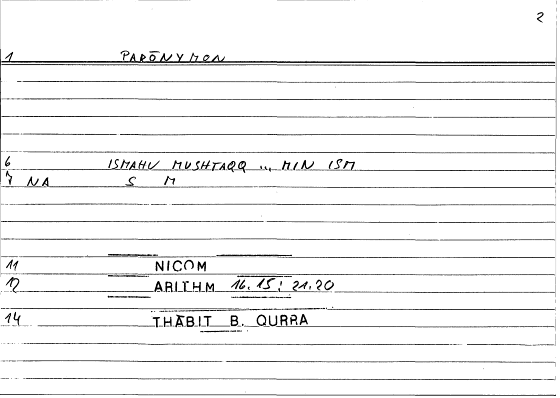 2
1 PARŌNYMON
6 ISMAHU MUSHTAQQ ... MIN ISM
7 NA S M
11 NICOM
12 ARITHM 16.15; 21.20
14 THĀBIT B. QURRA